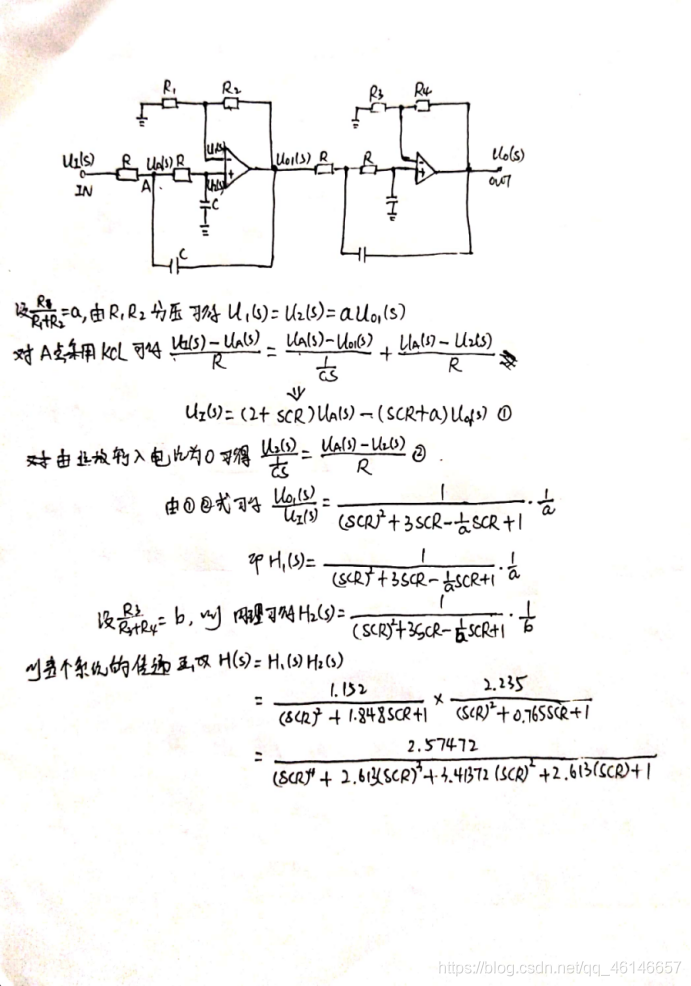 R₁ R₂ R₃ R₄
U_I(s) R U_A(s) R U₁(s) U₂(s) U₀₁(s) R R U₀(s)
IN A C OUT
C
设 /(R₁+R₂)=a, 由R₁R₂分压可得 U₁(s)=U₂(s)=aU₀₁(s)
对A点采用KCL可得 (U_I(s)-U_A(s))/R = (U_A(s)-U₀₁(s))/(1/CS) + (U_A(s)-U₂(s))/R
⇓
U_I(s)=(2+SCR)U_A(s)-(SCR+a)U₀₁(s) ①
对由运放输入电流为0可得 U₂(s)/(1/CS) = (U_A(s)-U₂(s))/R ②.
由①②式可得 U₀₁(s)/U_I(s) = 1/((SCR)²+3SCR-(1/a)SCR+1) · 1/a
即 H₁(s)= 1/((SCR)²+3SCR-(1/a)SCR+1) · 1/a
设 R₃/(R₃+R₄)=b, 则 同理可得 H₂(s)= 1/((SCR)²+3SCR-(1/b)SCR+1) · 1/b
则整个系统的传递函数 H(s)=H₁(s)H₂(s)
= 1.152/((SCR)²+1.848SCR+1) × 2.235/((SCR)²+0.765SCR+1)
= 2.57472/((SCR)⁴+2.613(SCR)³+3.41372(SCR)²+2.613(SCR)+1)
https://blog.csdn.net/qq_46146657